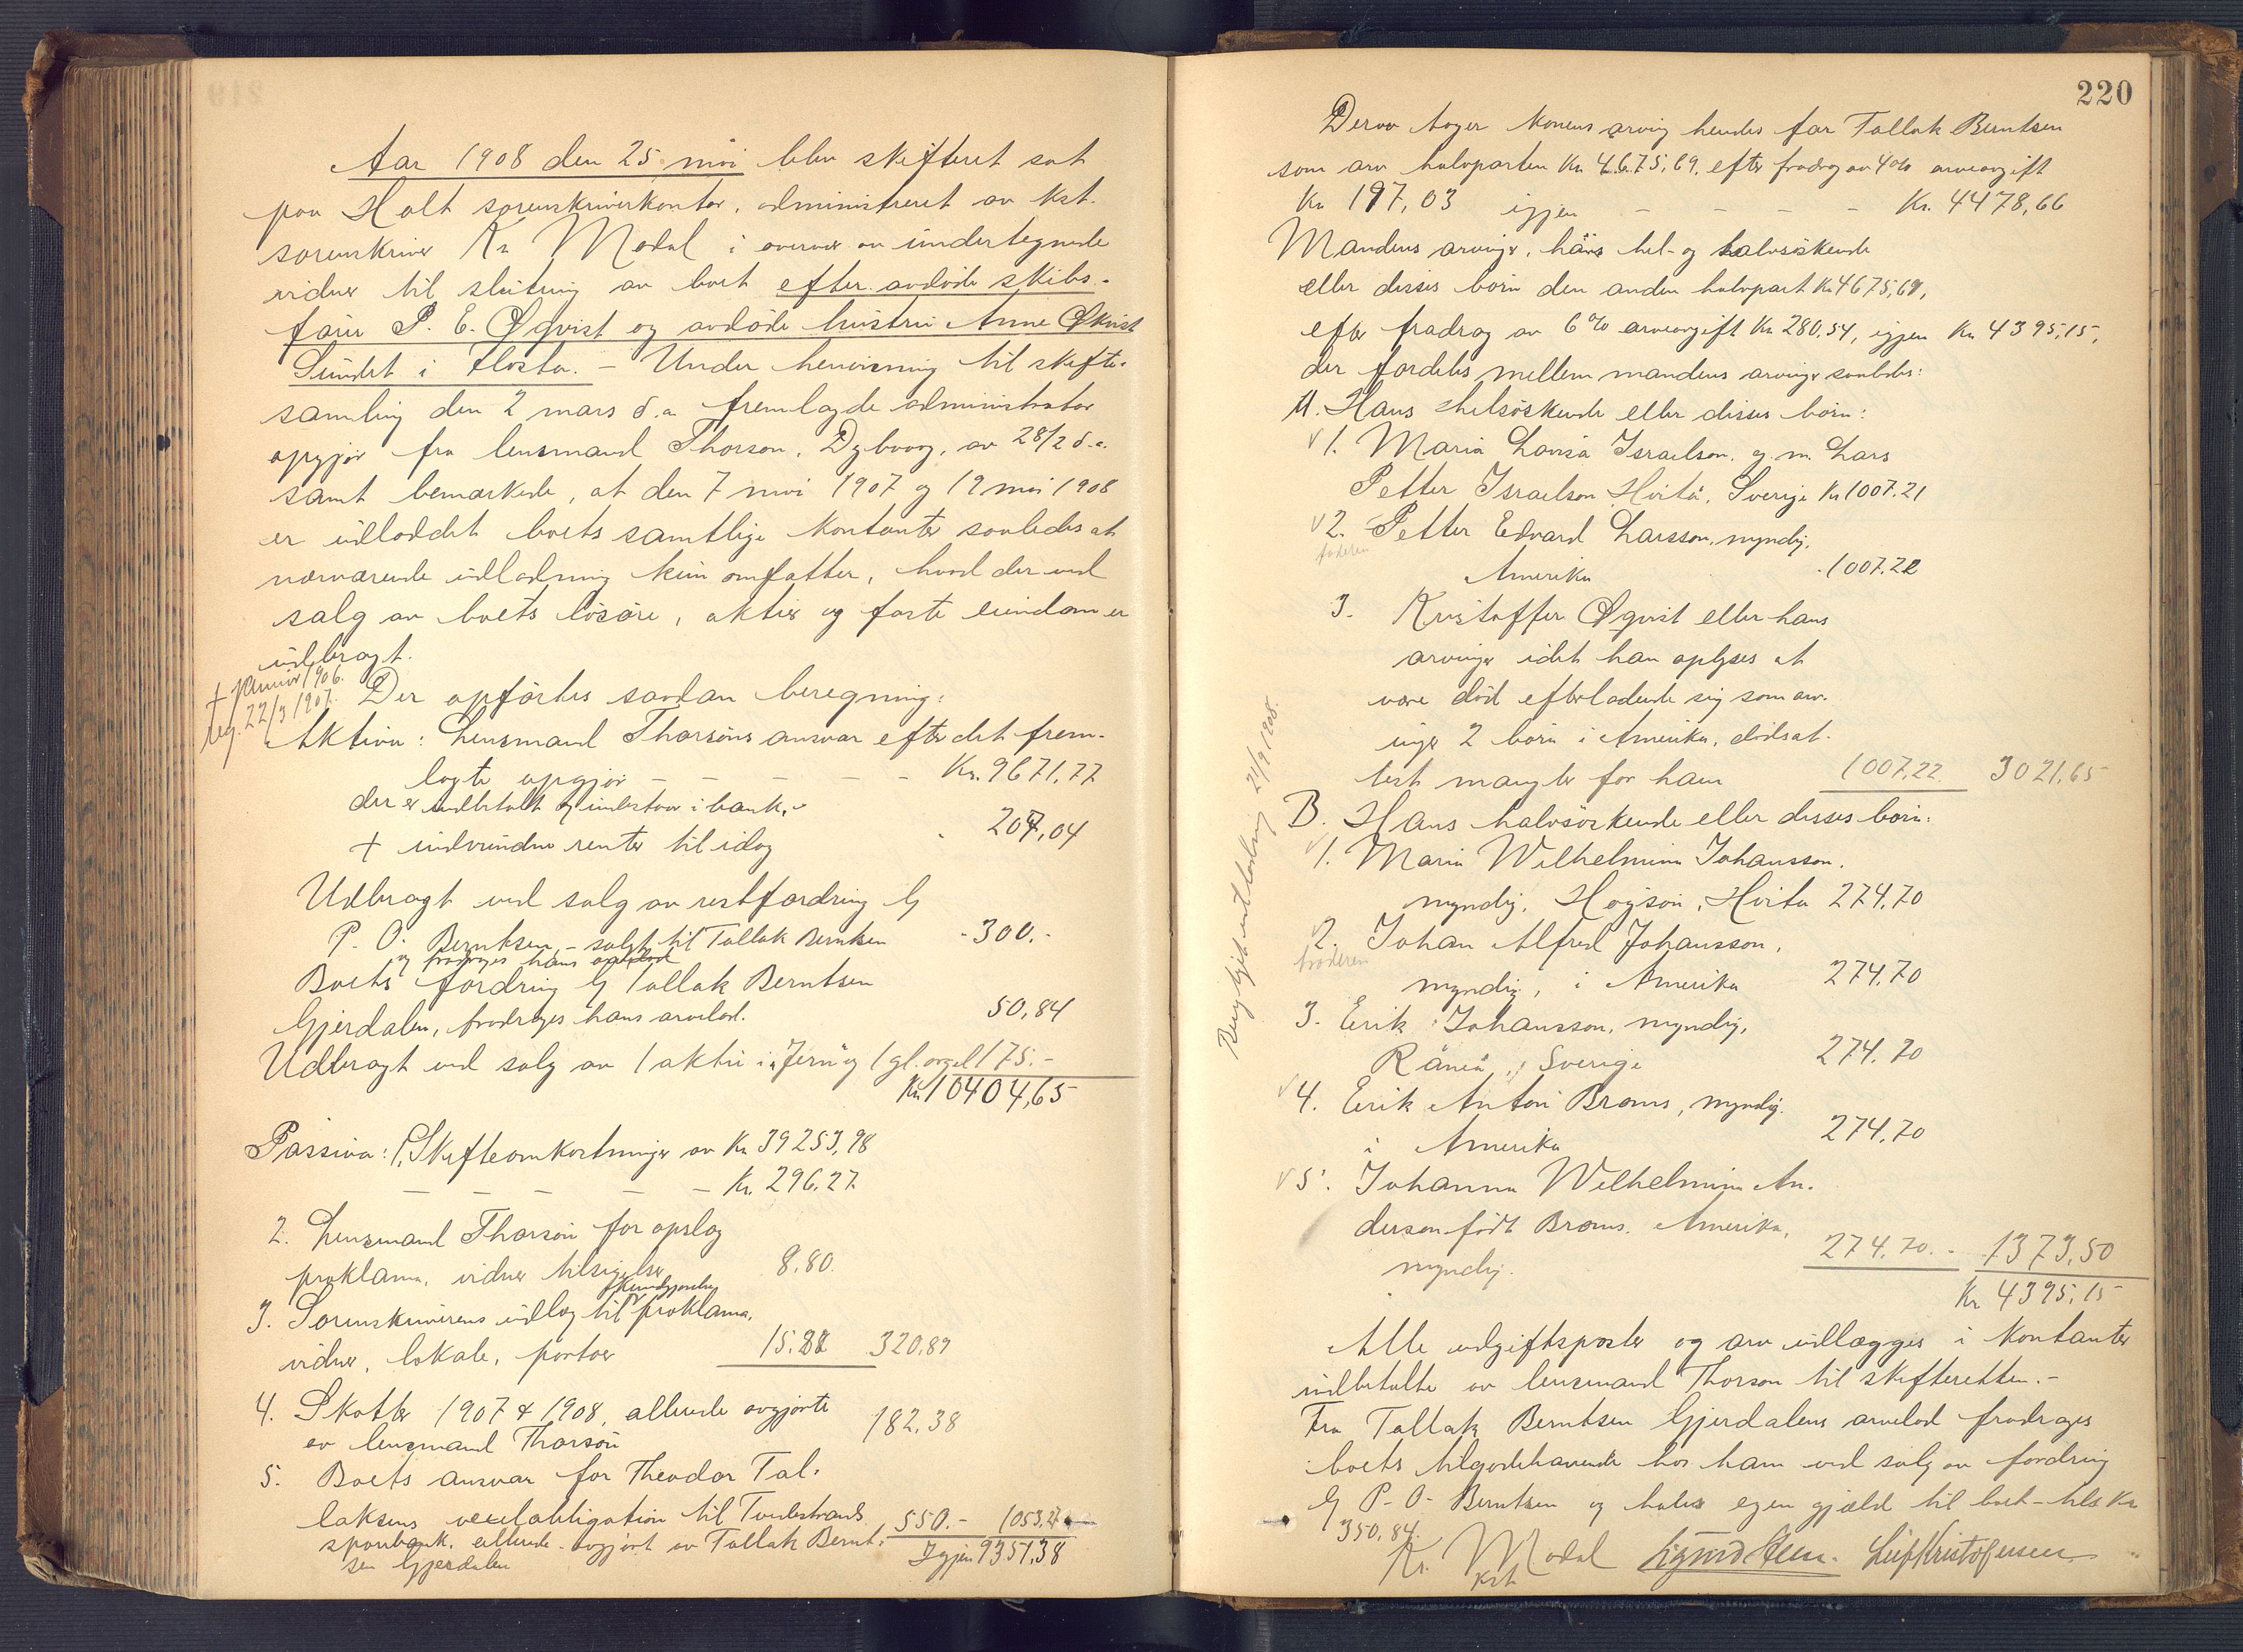 Aar 1908 den 25 mai blev skifteret sat
paa Holt sorenskriverkontor, administreret av kst.
sorenskriver Kr Modal i overvær av undertegnede
vidner til slutning av boet efter avdöde skibs-
förer P. E. Øqvist og avdöde hustru Anne Økvist
Sundet i Flosta. – Under henvisning til skifte-
samling den 2 mars d.a. fremlagde administrator
opgjör fra lensmand Thorson, Dybvaag, av 28/2 d.a.
samt bemærkede, at den 7 mai 1907 og 19 mai 1908
er udloddet boets samtlige kontanter saaledes at
nærværende udlodning kun omfatter, hvad der ved
salg av boets lösöre, aktier og faste eiendom er
udbragt.
† januar 1906.
reg. 22/3 1907.
Der opförtes saadan beregning:
Aktiva: Lensmand Thorsöns ansvar efter det frem-
lagte opgjör – – – – – Kr. 9671,77
der er indbetalt og indestaar i bank,
+ indvundne renter til idag - 207,04
Udbragt ved salg av restfordring hos
P. O. Berntsen, – solgt til Tallak Berntsen - 300.-
og fradrages hans arvelod
Boets fordring hos Tallak Berntsen
Gjerdalen, fradrages hans arvelod. 50,84
Udbragt ved salg av 1 aktie i "Jern" og 1 gl. orgel 175.-
Kr. 10404,65
Passiva: 1. Skifteomkostninger av Kr 39253,98
– – – – – Kr. 296.27.
2. Lensmand Thorsön for opslag
proklama, vidner tilsigelser 8.80.
3. Sorenskriverens udlæg til kundgjörelse proklama,
vidner, lokale, portoer 15.82 320,89
4. Skatter 1907 & 1908, allerede avgjorte
av lensmand Thorsön 182,38
5. Boets ansvar for Theodor Tal-
laksens vexelobligation til Tvedestrands
sparebank, allerede avgjort av Tallak Bernt- 550.- 1053,27
sen Gjerdalen Igjen 9351,38
220
Derav tager konens arving hendes far Tallak Berntsen
som arv halvparten Kr 4675,69, efter fradrag av 4% arveavgift
Kr 197,03 igjen – – – – Kr. 4478,66
Mandens arvinger, hans hel- og halvsöskende
eller disses börn den anden halvpart Kr 4675,69,
efter fradrag av 6% arveavgift Kr 280,54, igjen Kr 4395,15,
der fordeles mellem mandens arvinger saaledes:
A. Hans helsöskende eller disses börn:
v 1. Maria Lovisa Israelson, g. m. Lars
Petter Israelson Hvitå, Sverige Kr 1007.21
v 2. Petter Edvard Larsson, myndig,
faderen
Amerika - 1007.22
3. Kristoffer Øqvist eller hans
arvinger idet han oplyses at
være död efterladende sig som arv-
inger 2 börn i Amerika, dödsat-
test mangler for ham 1007,22. 3021,65
B. Hans halvsöskende eller disses börn:
v 1. Maria Wilhelmina Johansson,
myndig, Högsön, Hvita 274,70
v 2. Johan Alfred Johansson,
broderen
myndig, i Amerika 274,70
3. Erik Johansson, myndig,
Råneå, Sverige 274.70
v 4. Erik Anton Broms, myndig.
i Amerika 274,70
v 5. Johanna Wilhelmina An-
derson född Broms. Amerika,
myndig. 274.70. - 1373,50
Kr 4395,15
Alle udgiftsposter og arv udlægges i kontanter
indbetalte av lensmand Thorson til skifteretten. –
Fra Tallak Berntsen Gjerdalens arvelod fradrages
boets tilgodehavende hos ham ved salg av fordring
hos P. O. Berntsen og hans egen gjæld til boet – tils Kr
350,84.
Kr. Modal
kst
Leif Kristofersen